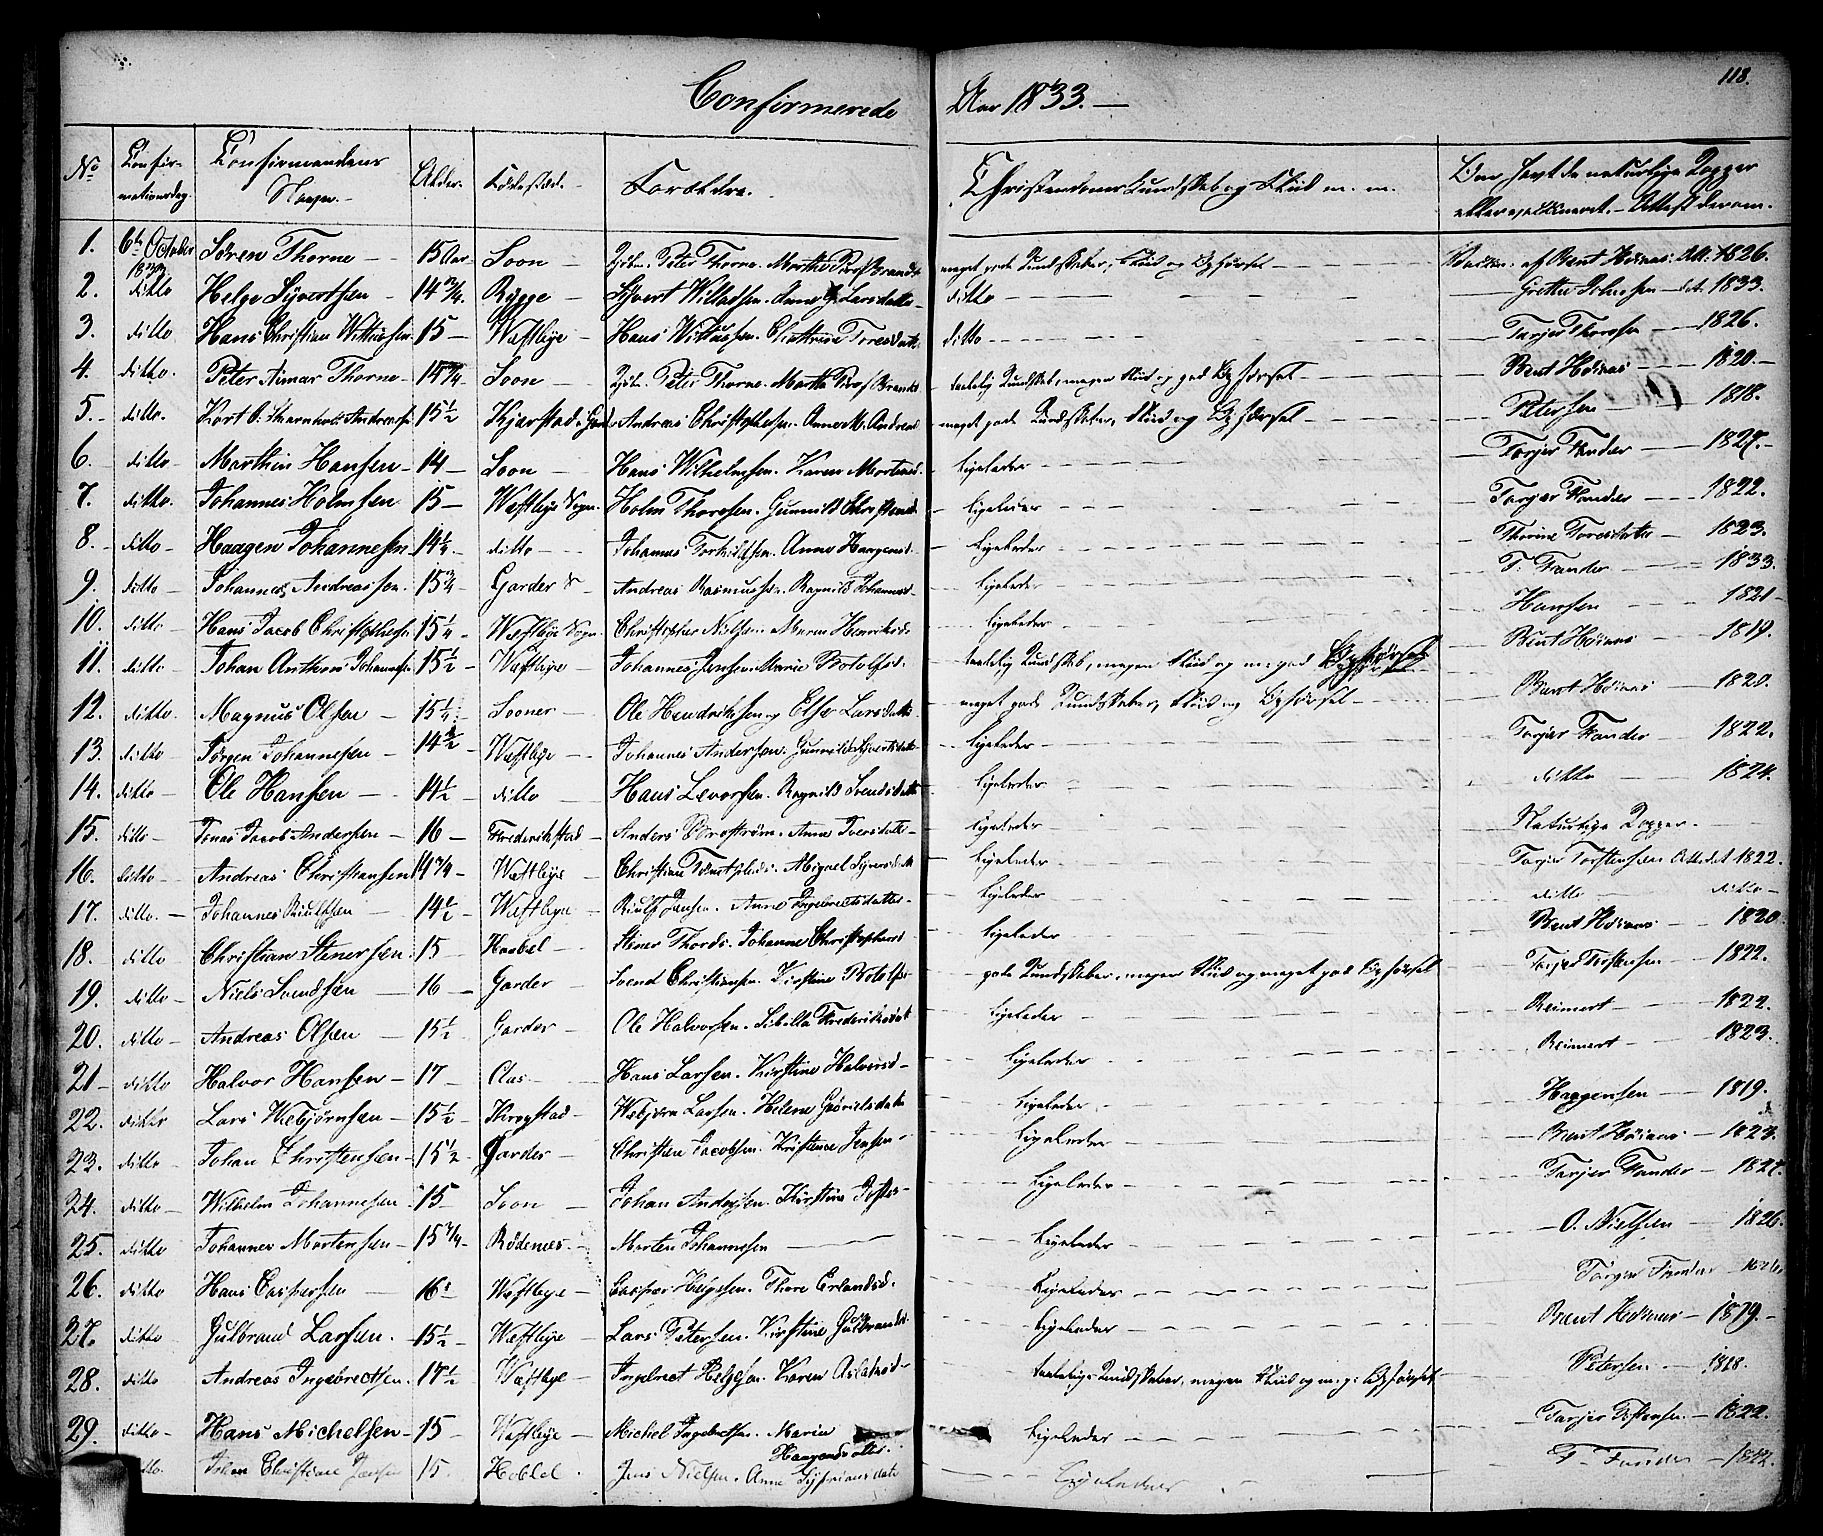 118.
Confirmerede Aar 1833. —
No Confirmationsdag. Confirmandens Navn. — Alder. Fødested. Forældre. Christendoms Kundskab og Flid m. m. Om havt de naturlige Kopper eller vaccineret. — Attest derom.
1. 6te October 1833 Søren Thorne — 15 Aar — Soon — Peter Thorne. Marthe meget gode Kundskaber, Flid og Opførsel — af Bent Høinæs. Att. 1826.
2. ditto Helge Syvertsen — 14 3/4 Rygge — Syvert Willadsen. Anne Larsdatter ditto — Grethe Johnsen — 1833.
3. ditto Hans Christian Wittussen. 15 — Westbye — Hans Wittussen. Cathrine Toresdatt. ditto — Torjer Thoresen — 1826.
4. ditto. Peter Aimar Thorne — 14 3/4 — Soon — Peter Thorne. Marthe taalelig Kundskab, megen Flid og god Opførsel — Bent Høinæs — 1820. —
5. ditto. Andersen 15 1/2 Andreas Christophersen. Anne M. Andersd. meget gode Kundskaber, Flid og Opførsel — Petersen — 1818.
6. ditto — Marthin Hansen — 14 — Soon — Hans Wilhelmsen. Karen Mortensd. — Ligeleder — Torjer Fander — 1827. —
7. ditto. Johannes Holmsen 15 — Westbye Sogn. Holm Thoresen. Gunnild Christensd. — Ligeleder — Torjer Fander — 1822.
8. — ditto — Haagen Johannesen 14 1/4 — ditto — Johannes Torkildsen. Anne Haagensd. — Ligeleder — Thorine Toresdatter — 1823.
9. ditto — Johannes Andreassen. 15 3/4 Garder S Andreas Rasmussen. Ragnild Johannesd. — Ligeleder — T. Fander — 1833.
10. ditto — Hans Jacob Christophersen 15 1/4 — Westbye Sogn. Christopher Nielsen. Maren Henriksd. — Ligeleder — Hansen — 1821 —
11. ditto — Johan Anthon Johannesen 15 1/2 — Westbye — Johannes Jensen. Marie Botolfsd. taalelig Kundskab, megen Flid og m. god Opførsel Bent Høinæs — 1819.
12. ditto. Magnus Olsen — 15 1/4 — Sooner — Ole Hendriksen og Else Larsdatter meget gode Kundskaber, Flid og Opførsel — Bent Høinæs — 1820.
13. ditto — Jørgen Johannesen — 14 1/2 — Westbye — Johannes Andersen. Gunnild Syvertsdatter — Ligeleder — Torjer Fander — 1822.
14. ditto — Ole Hansen — 14 1/2 — ditto — Hans Levorsen. Ragnild Svendsdatter — Ligeleder — ditto — 1824.
15. ditto — Jonas Jacob Andersen — 16 — Frederikstad — Anders Broström. Anne Iversdatter — Ligeleder — Naturlige Kopper. —
16. ditto — Andreas Christiansen 14 3/4 — Westbye — Christian — Ligeleder — Torjer Torstensen Attedet 1822.
17. ditto. — Johannes Riulfsen 14 1/2 — Westbye — Riulf Jensen. Anne Ingebretsdatter — Ligeleder — ditto — ditto —
18. ditto Christian Stenersen 15 — Haabel — Stener Thords. Johanne Christophersd — Ligeleder — Bent Høinæs — 1820
19. ditto — Niels Svendsen — 16 — Garder — Svend Christiansen. Kirstine Botolfs — gode Kundskaber, megen Flid og meget god Opførsel Torjer Torstensen — 1822.
20. ditto — Andreas Olsen — 15 1/2 Garder — Ole Halvorsen. Sibilla Frederiksdatt — Ligeleder — Reimert — 1822.
21 — ditto Halvor Hansen — 17 — Aas — Hans Larsen. Kirstine Halvorsd — — Ligeleder — Reimert — 1823.
22. ditto Lars Webjørnsen — 15 1/2 — Krogstad — Webjørn Larsen. Helene — Ligeleder — Haagensen — 1819.
23. ditto — Johan Christensen — 15 1/2 — Garder — Christen Jacobsen. Kirstence Jensen — — Ligeleder — Bent Høinæs — 1823.
24. ditto — Wilhelm Johannesen — 15 — Soon — Johan Andersen. Kirstine — Ligeleder — Torjer Fander — 1827.
25. ditto Johannes Mortensen — 15 3/4 — Rødenæs — Morten Johannesen — Ligeleder — O. Nielsen — 1826.
26. ditto Hans Caspersen — 16 Westbye — Casper Helgesen. Thore Erlandsd. — Ligeleder — Torger Fander — 1826
27. ditto Gulbrand Larsen. 15 1/2 — Westbye — Lars Petersen. Kirstine Gulbrandsd. — Ligeleder — Bent Høinæs — 1819. —
28. ditto Andreas Ingebrectsen. 17 1/2 — Westbye — Ingebrect Helgesen. Karen Aslaksd — taalelige Kundskaber, megen Flid og m. g. Opførsel. Petersen — 1828.
29. ditto — Hans Michelsen — 15 — Westbye — Michel Ingebretsen. Maria Haagensdatter. Ligeleder — Torjer Torstensen. — 1822.
ditto. Johan Christian Jensen 15. Hobbel. Jens Nielsen. Anne Ligeleder — T. Fander — 1822.